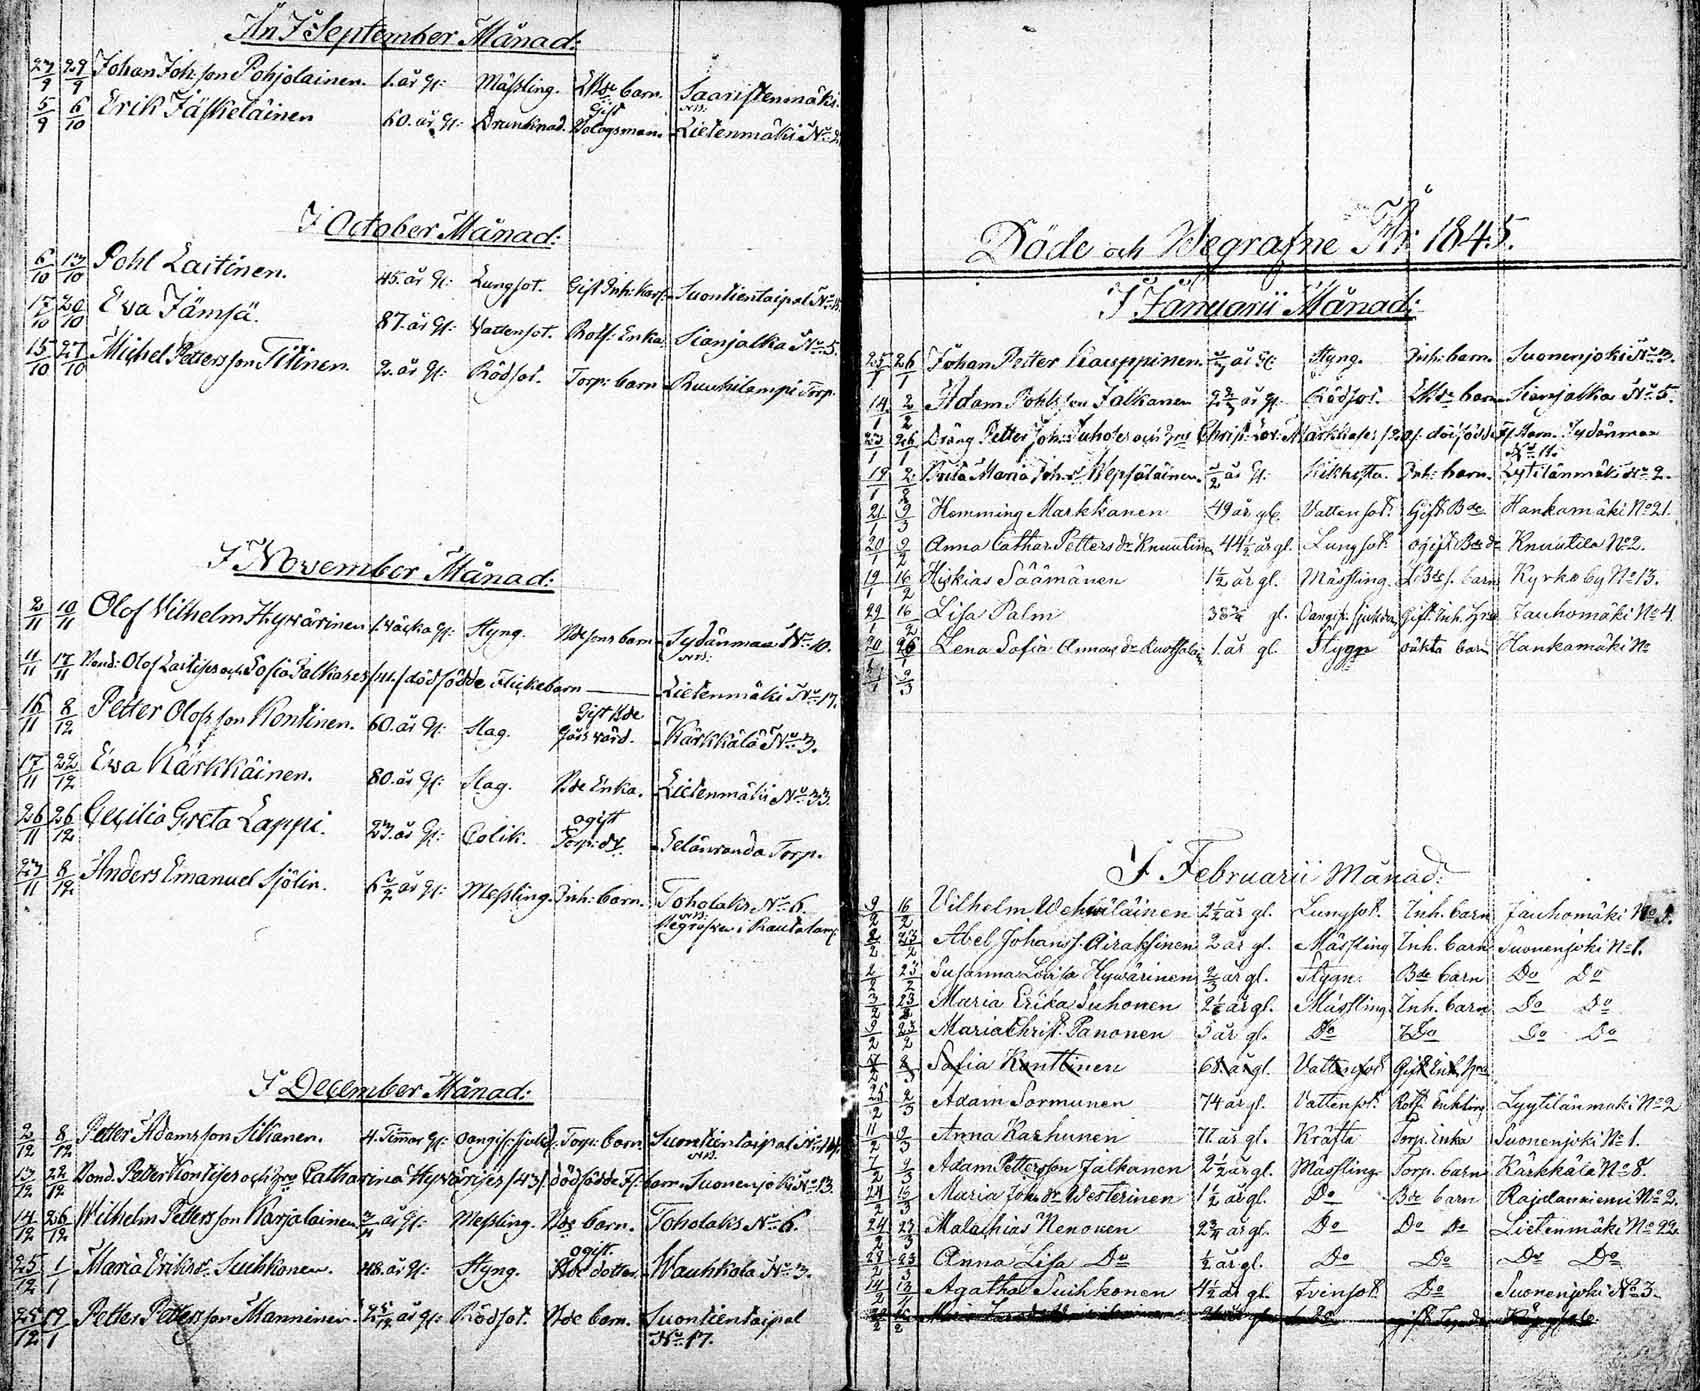 I September Månad:
27/9 29/9 Johan Joh:sson Pohjolainen. 1. år gl: Mässling. Bde barn. Saaristenmäki.
5/9 6/10 Erik Jäskeläinen 60. år gl: Drunknad. Gift Bolagsman. Lietenmäki No
I October Månad:
6/10 13/10 Pohl Laitinen. 45. år gl: Lungsot. Gift Inh: karl. Suontientaipal No
17/10 20/10 Ewa Jämsä. 87. år gl: Vattensot. Rotf: Enka. Sianjalka No 5.
15/10 27/10 Michel Pettersson Titinen. 2. år gl: Rödsot. Torp: barn Ruukilampi Torp.
I November Månad:
2/11 10/11 Olof Vilhelm Hywärinen 1. wäcka gl: Styng. Bdesons barn Sydänmaa No 10.
11/11 17/11 Bond: Olof Laitises och Sofia Jalkases /41./ dödfödde Flickebarn Lietenmäki No 17.
16/11 8/12 Petter Olofsson Kontinen. 60. år gl: Slag. Gift Bde Kärkkälä No 3.
17/11 22/12 Ewa Kärkkäinen. 80. år gl: Slag. Bde Enka. Lietenmäki No 33.
26/11 26/12 Cecilia Greta Lappi. 23. år gl: Colik. ogift Torp: dr. Selänranda Torp.
27/11 8/12 Anders Emanuel Sjölin. 6 1/2 år gl: Messling. Inh: barn. Toholaks No 6.
Begrafven i Rautalamp
I December Månad:
2/12 8/12 Petter Adamsson Sikanen. 4. Timmar gl: Oangif: sjukd: Torp: barn. Suontientaipal No 14.
13/12 22/12 Bond. Petter Kontises och Hru Catharina Hywärises /43/ dödfödde Fl: barn. Suonenjoki No 13.
14/12 26/12 Wilhelm Pettersson Karjalainen 3/4 år gl: Messling. Bde barn. Toholaks No 6.
25/12 1/1 Maria Eriksdr. Suihkonen. 48. år gl: Styng. ogift. Bde dotter. Wauhkola No 3.
25/12 19/1 Petter Pettersson Manninen. år gl: Rödsot. Bde barn. Suontientaipal
No 17.
Döde och Begrafne År 1845.
I Januarii Månad:
25/1 26/1 Johan Petter Kauppinen. år gl: Styng. Inh: barn. Suonenjoki No
14/1 2/2 Adam Pohlsson Jalkanen år gl: Rödsot. Bde barn Sianjalka No 5.
23/1 26/1 Dräng Petter Joh: Suhoses och Hrus Christ: Lov: Markkases /20/: dödfödde Fl. Barn. Sydänmaa
No 11.
19/1 Brita Maria Joh:dr Wepsäläinen. 1/2 år gl: Kikhosta. Inh: barn. Lytilänmäki No 2.
21/1 9/3 Hemming Markkanen 49 år gl. Vattensot. Gift Bde. Hankamäki No 21.
20/1 9/2 Anna Cathar. Petters dr Knuutinen 44 1/2 år gl. Lungsot. ogift Bde dr Knuutila No 2.
19/1 16/2 Hiskias Säämänen 1 1/2 år gl. Mässling. Bde s. barn Kyrkoby No 13.
29/1 16/2 Lisa Palm gl. Oangif. sjukdom Gift Inh. Hru Jauhomäki No 4.
20/1 Lena Sofia Annas dr 1. år gl. Stygn oäkta barn Hankamäki No
I Februarii Månad:
9/2 16/2 Vilhelm Wehviläinen 2 1/2 år gl. Lungsot. Inh. barn Jauhomäki No
8/2 23/2 Abel Johans s. Airaksinen 2 år gl. Mässling Inh. barn Suonenjoki No 1.
2/2 23/2 Susanna Lovisa Hywärinen 2/3 år gl. Stygn. Bde barn Do Do
3/2 23/2 Maria Erika Suhonen år gl. Mässling Inh. barn Do Do
9/2 23/2 Maria Christ. Panonen 5 år gl. Do Do Do Do
Sofia Konttinen 68. år gl. Vattensot Gift Inh. Hru
25/2 2/3 Adam Sormunen 74 år gl. Vattensot. Rotf. Enkling Lyytilänmäki No 2
11/2 9/3 Anna Karhunen 77. år gl. Kräfta Torp. Enka Suonenjoki No 1.
7/2 9/3 Adam Pettersson Jalkanen 2 1/2 år gl. Mässling Torp. barn Kärkkälä No 8.
24/2 Maria Johs dr Westerinen 1 1/2 år gl. Do Bde barn Rajalanniemi No 2.
24/2 23/3 Malachias Nenonen 2 3/4 år gl. Do Do Do Lietenmäki No 22.
28/2 23/3 Anna Lisa Do 1/2 år gl. Do Do Do Do
Agatha Suihkonen 4 1/2 år gl. Do Suonenjoki No 3.